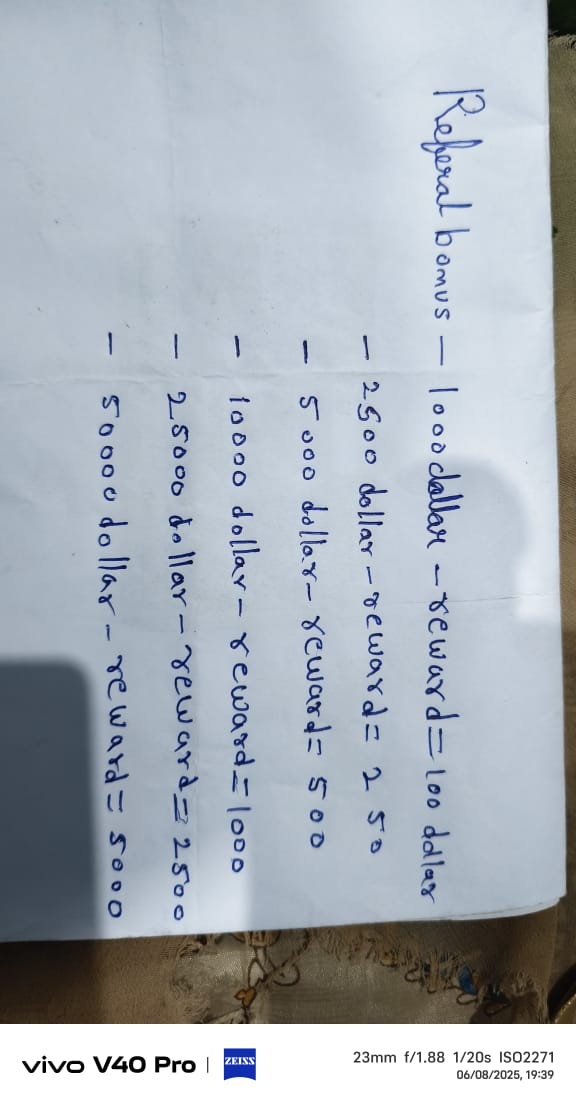 Referal bonus — 1000 dollar – reward = 100 dollar
— 2500 dollar – reward = 250
— 5000 dollar – reward = 500
— 10000 dollar – reward = 1000
— 25000 dollar – reward = 2500
— 50000 dollar – reward = 5000
vivo V40 Pro | ZEISS
23mm f/1.88 1/20s ISO2271
06/08/2025, 19:39